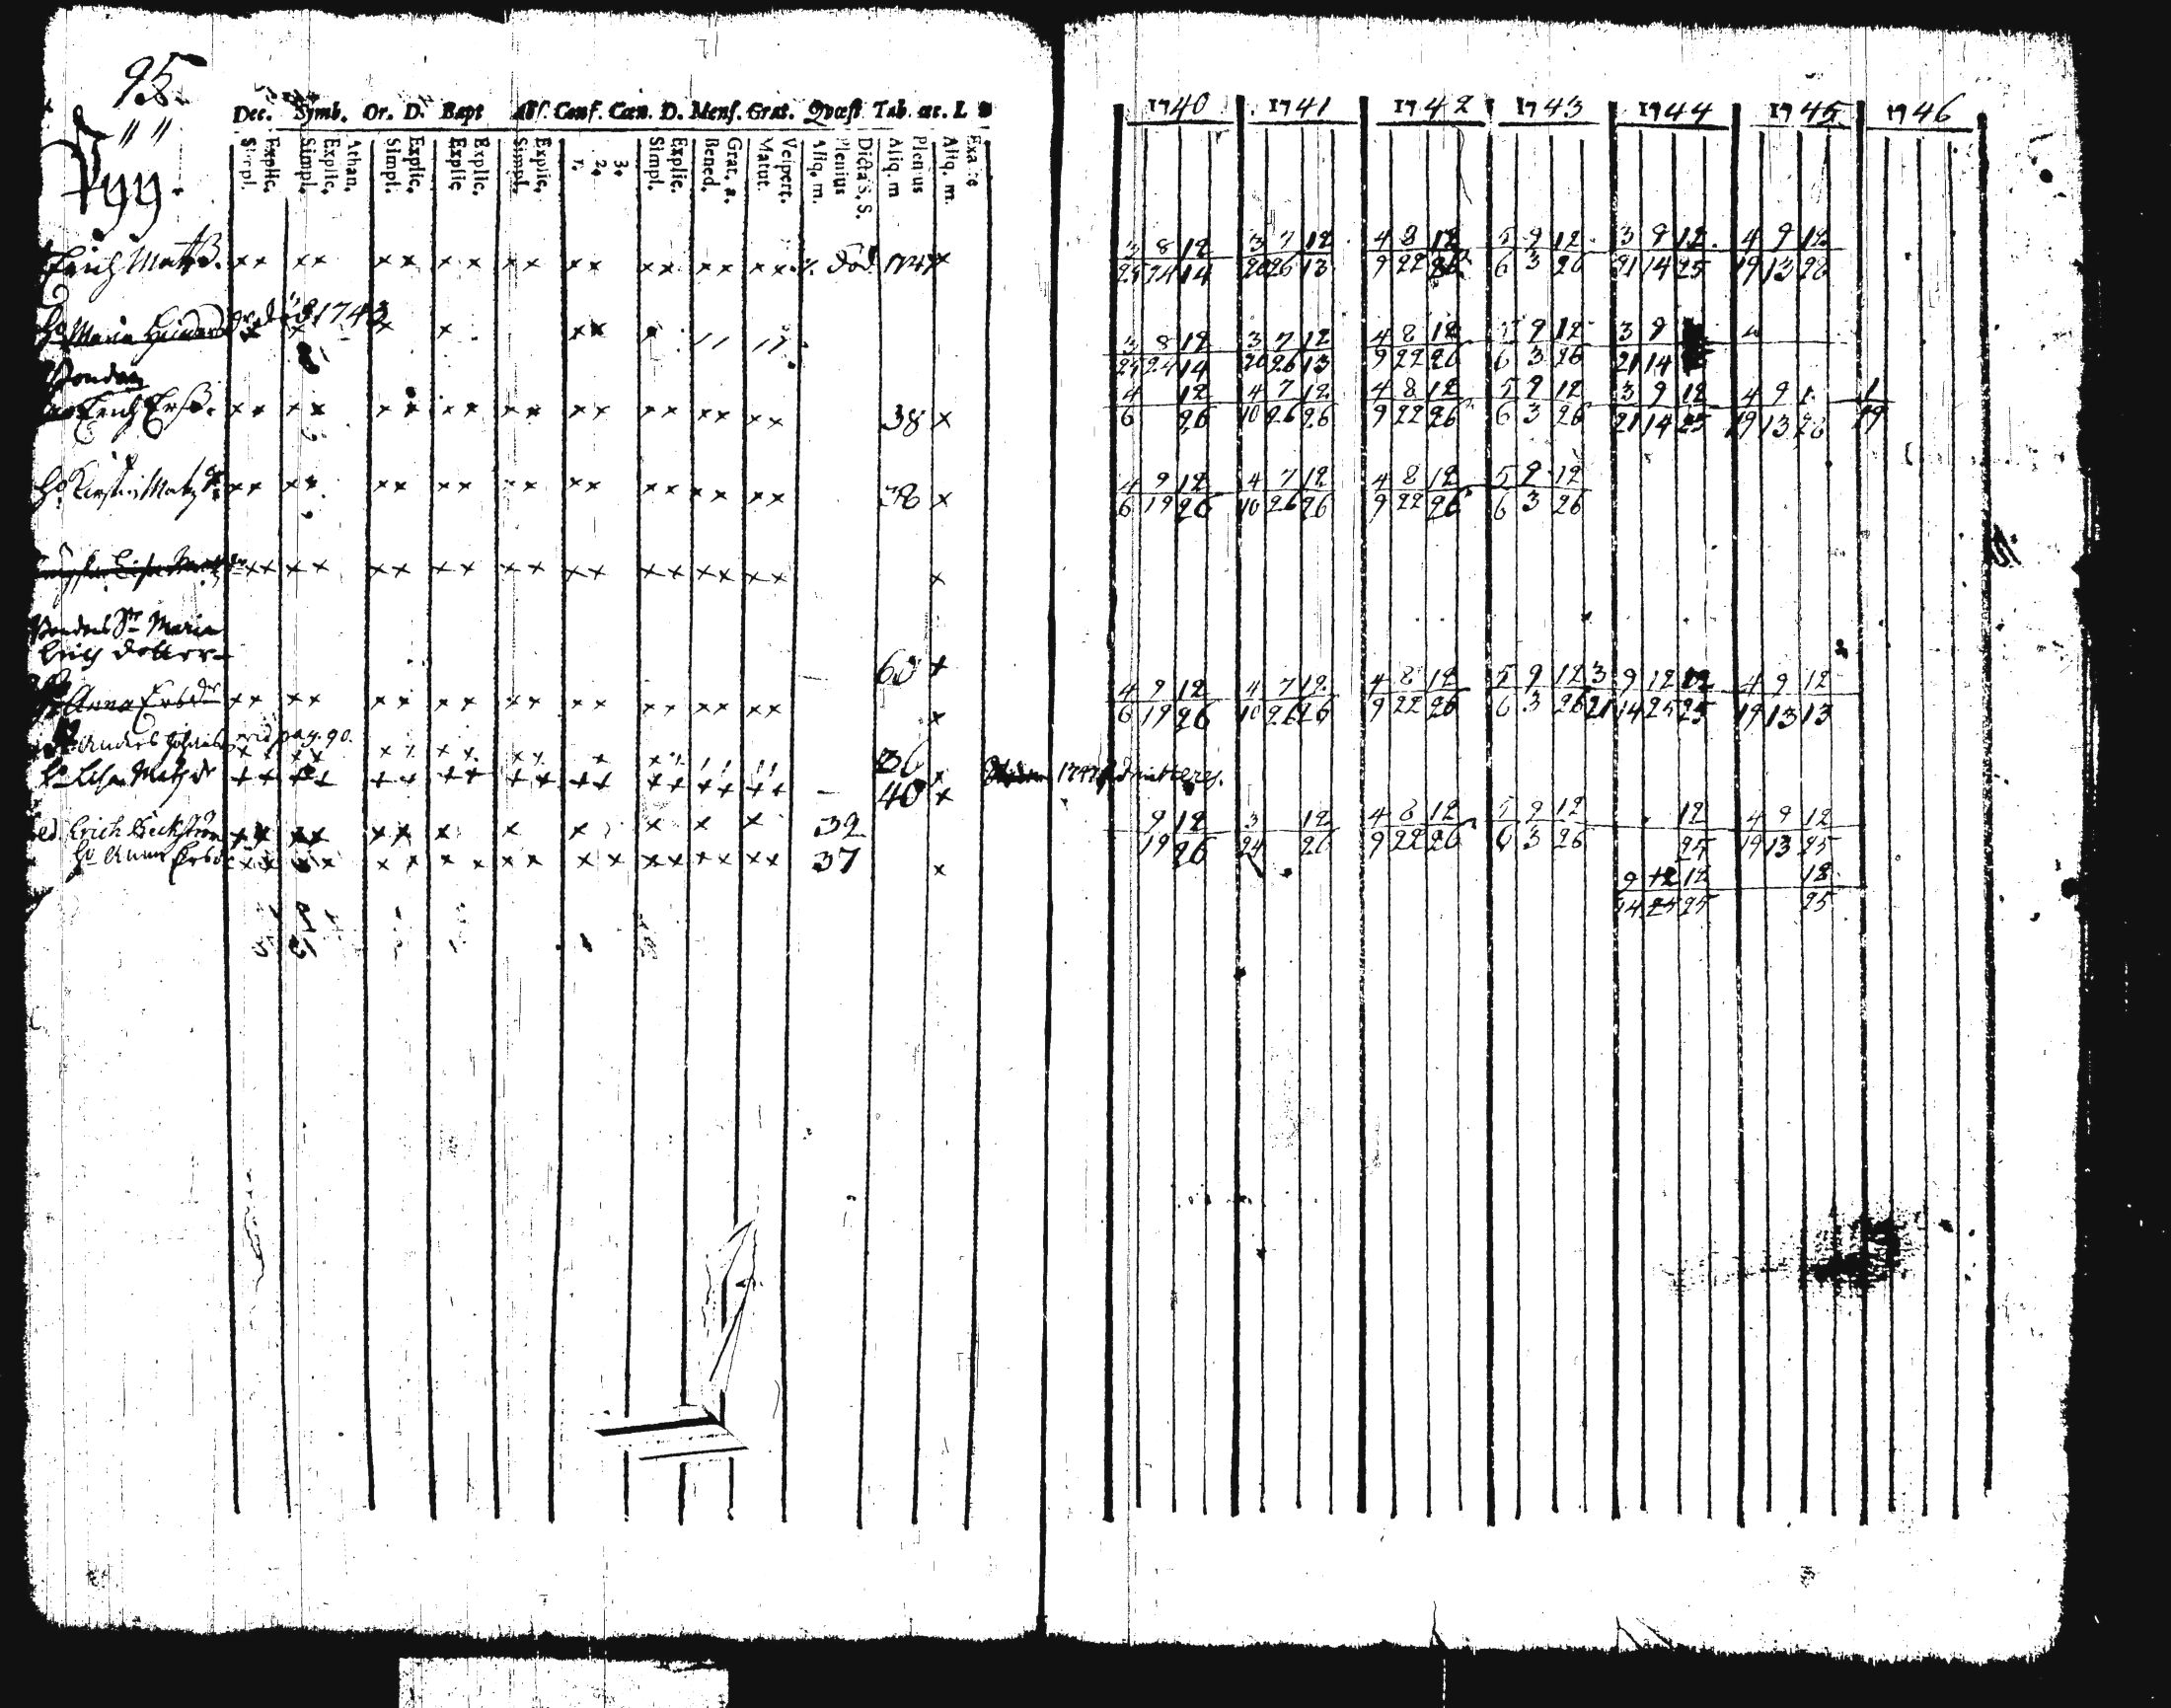 95.
" "
Dec. Symb. Or. D. Bapt Abs. Conf. Cœn. D. Mens. Grat. Qvæst Tab. œc. L
Simpl. Explic. Simpl. Explic. Athan. Simpl. Explic. Explic Explic. Simpl. Explic. 1. 2. 3. Simpl. Explic. Bened. Grat. a. Matut. Vespert. Aliq. m. Plenius Dicta S. S. Aliq. m Plenius Aliq. m.
Erich Matß. ×× ×× ×× ×× ×× ×× ×× ×× ×× död 1747 ×
död 1743
Hº Maria
Bonden
Erich Erß. ×× ×× ×× ×× ×× ×× ×× ×× ×× 38 ×
Hº Kerstin Matz dr ×× ×× ×× ×× ×× ×× ×× ×× ×× 38 ×
×× ×× ×× ×× ×× ×× ×× ×× ×× ×
Bondens Sr Maria
Erichs dotter 60 ×
Anna Ersdr ×× ×× ×× ×× ×× ×× ×× ×× ×× ×
Anders vid pag. 90. 36 ×
Hº Lisa Matz dr ×× ×× ×× ×× ×× ×× ×× ×× ×× — 40 × 1747 admitteres.
Erich Beckström ×× ×× ×× × × × × × × 32
Hº Anna Ersd ×× ×× ×× ×× ×× ×× ×× ×× ×× 37 ×
1740 1741 1742 1743 1744 1745 1746
3 8 12 3 7 12 4 8 12 5 9 12 3 9 12 4 9 12
24 24 14 20 26 13 9 22 26 6 3 26 21 14 25 19 13 26
3 8 12 3 7 12 4 8 12 5 9 12 3 9
24 24 14 20 26 13 9 22 26 6 3 26 21 14
4 12 4 7 12 4 8 12 5 9 12 3 9 12 4 9 1 1
6 26 10 26 26 9 22 26 6 3 26 21 14 25 19 13 26 19
4 9 12 4 7 12 4 8 12 5 9 12
6 19 26 10 26 26 9 22 26 6 3 26
4 9 12 4 7 12 4 8 12 5 9 12 3 9 12 12 4 9 12
6 19 26 10 26 26 9 22 26 6 3 26 21 14 25 25 19 13 13
9 12 3 12 4 8 12 5 9 12 12 4 9 12
19 26 24 26 9 22 26 6 3 26 25 19 13 25
9 12 12 12
14 25 25 25